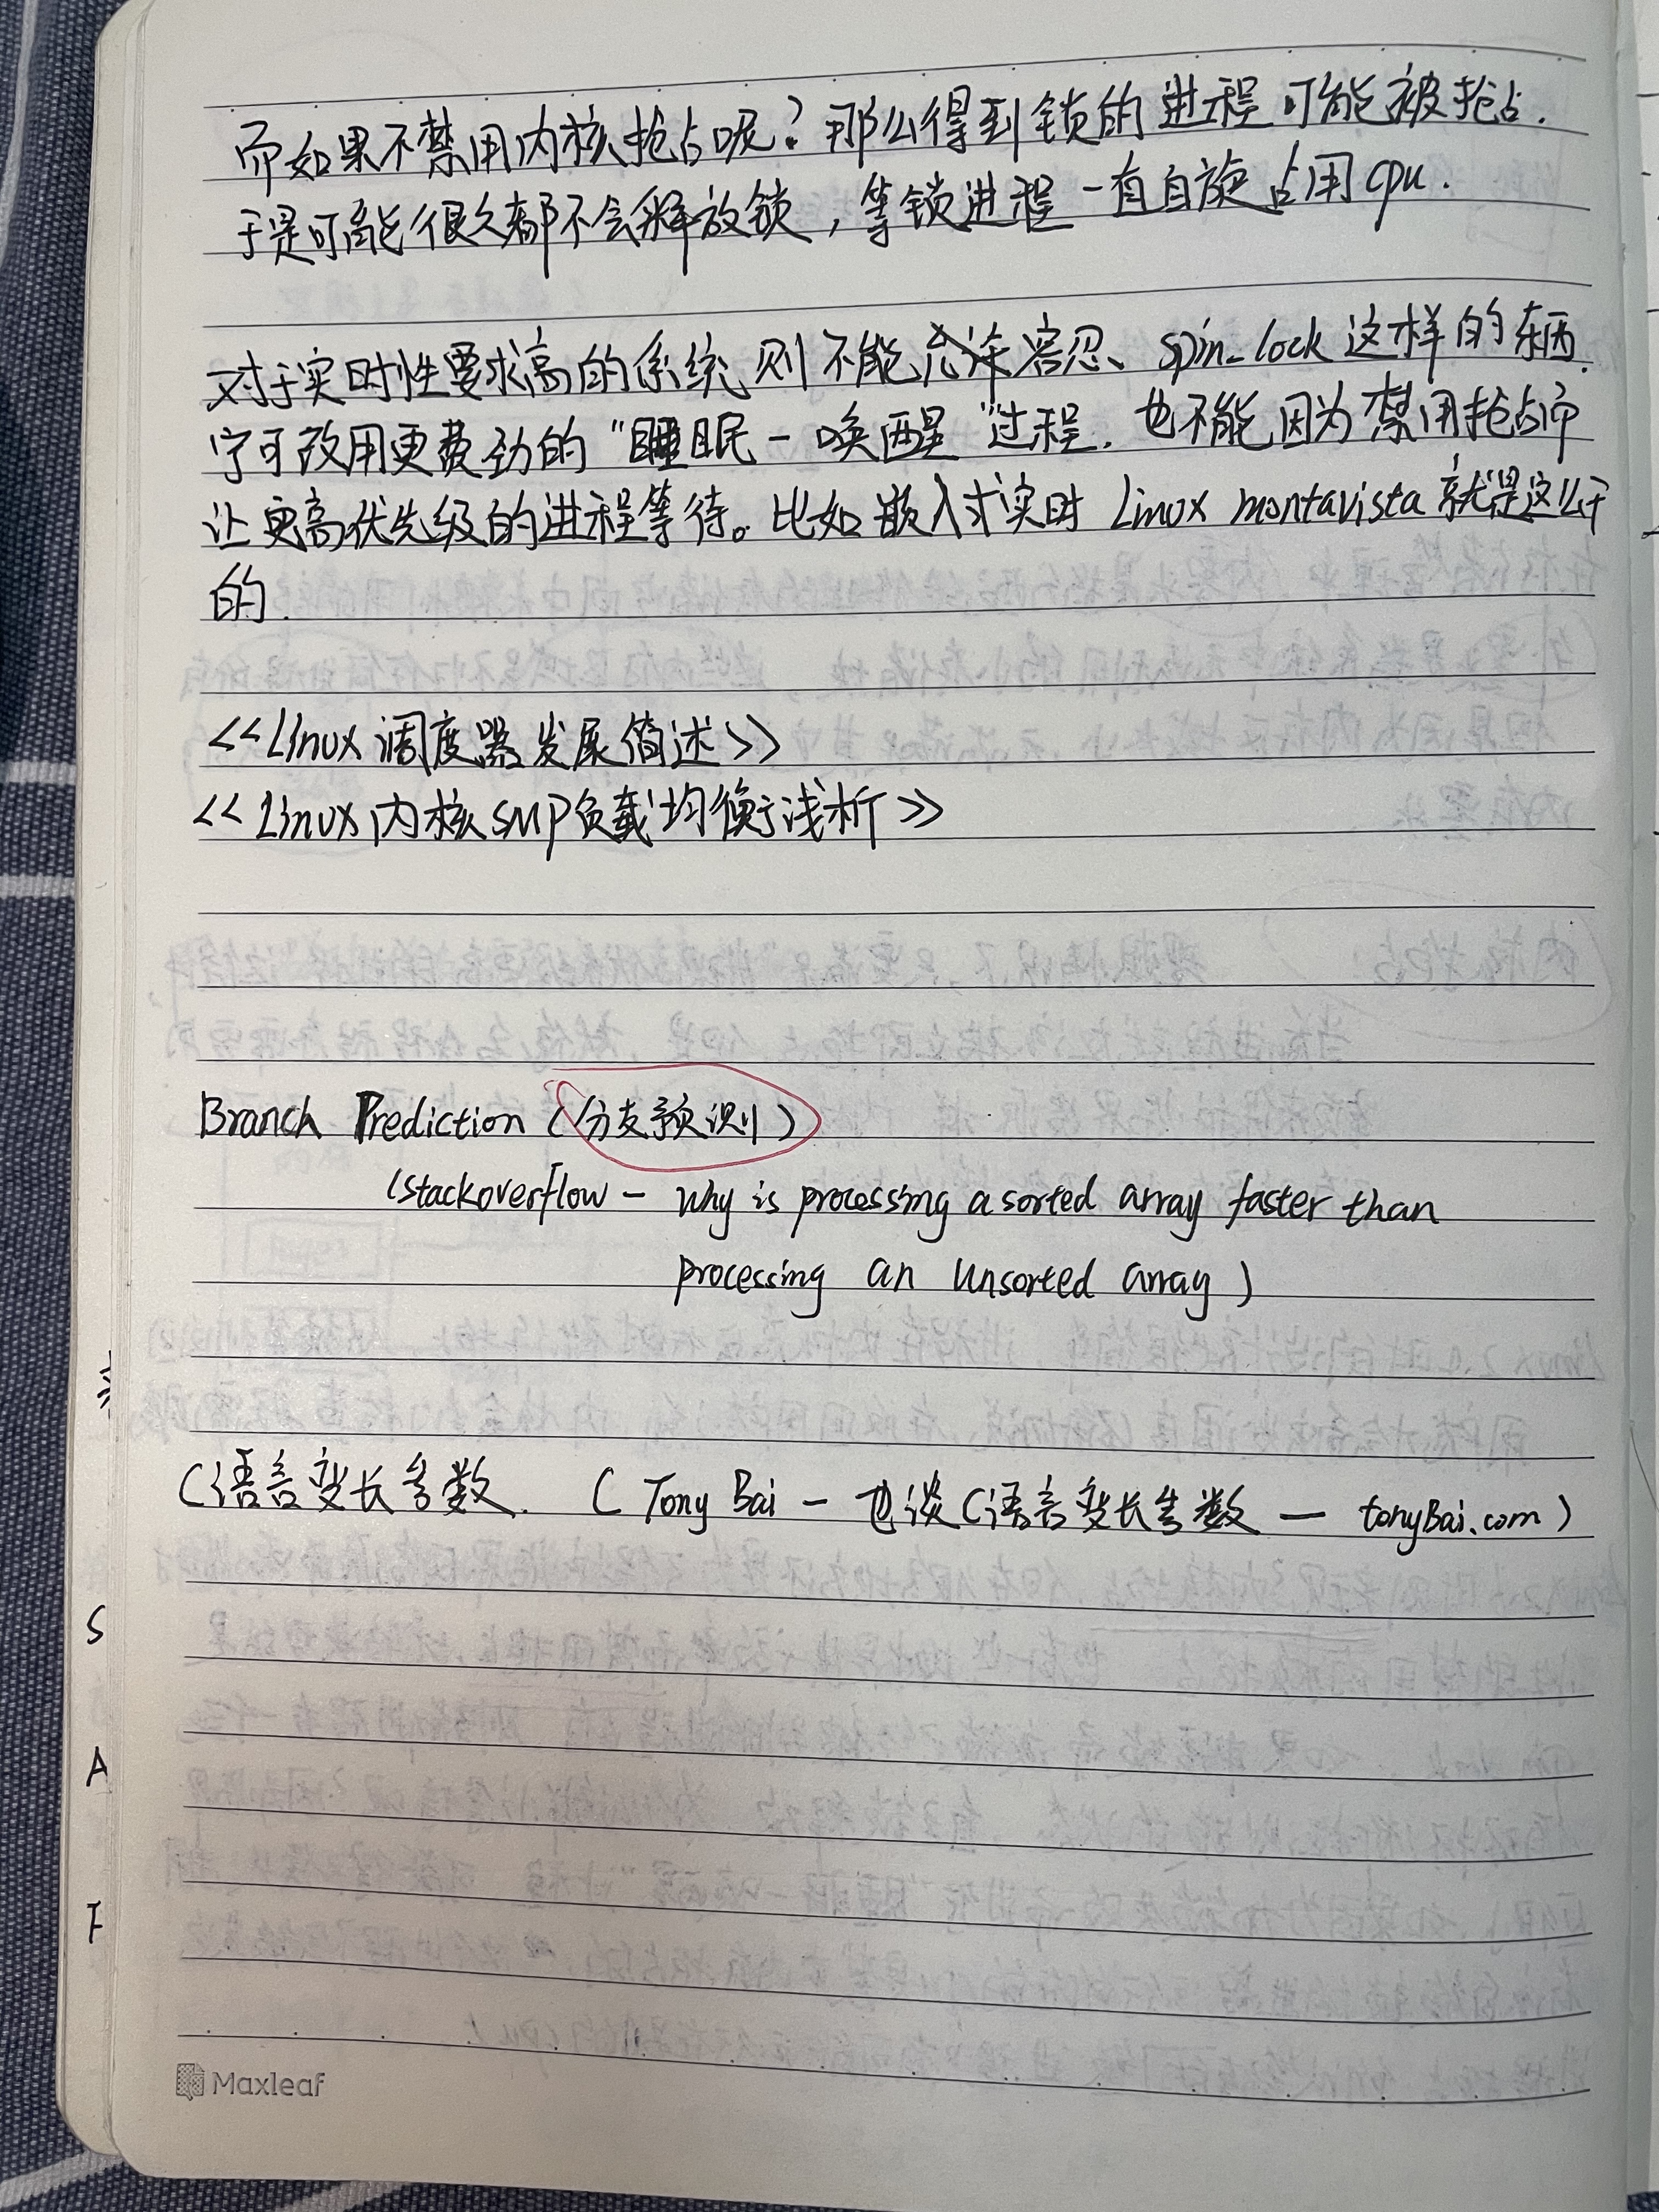 而如果不禁用内核抢占呢？那么得到锁的进程可能被抢占.
于是可能很久都不会释放锁，等锁进程一直自旋占用cpu.
对于实时性要求高的系统,则不能允许容忍、spin_lock 这样的东西.
宁可改用更费劲的 "睡眠-唤醒" 过程. 也不能因为禁用抢占而
让更高优先级的进程等待。比如嵌入式实时 Linux montavista 就是这么干
的.
<<Linux 调度器发展简述>>
<<Linux 内核SMP负载均衡浅析>>
Branch Prediction (分支预测)
(stackoverflow - why is processing a sorted array faster than
processing an unsorted array)
C语言变长参数. ( Tony Bai - 也谈C语言变长参数 — tonyBai.com)
S
A
F
Maxleaf